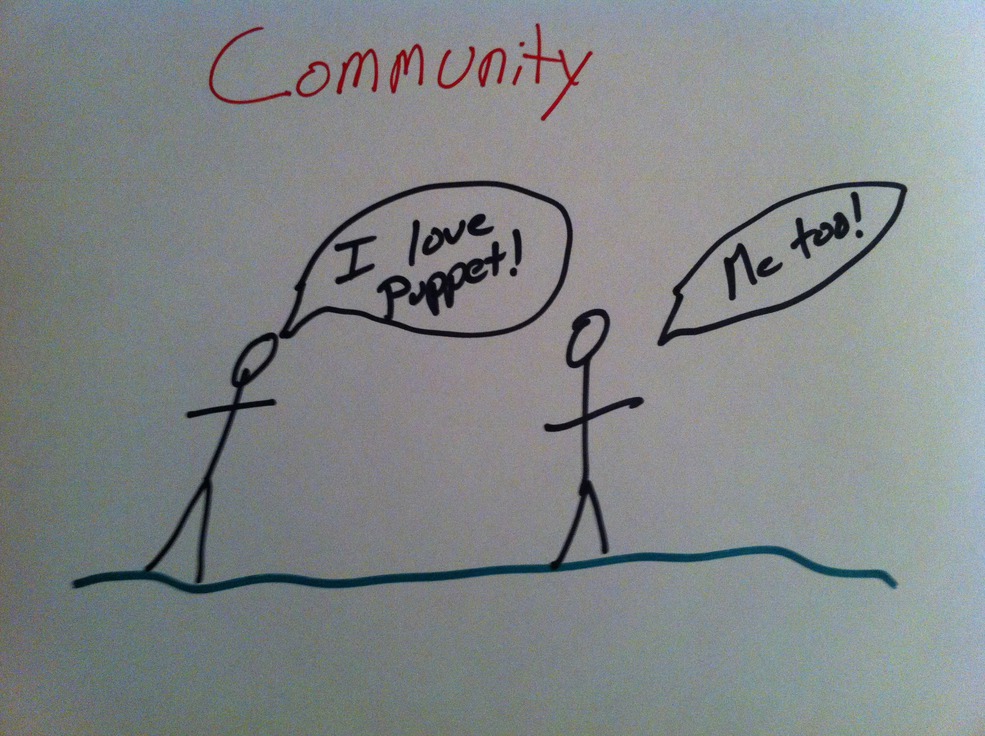 Community
I love
Puppet!
Me too!